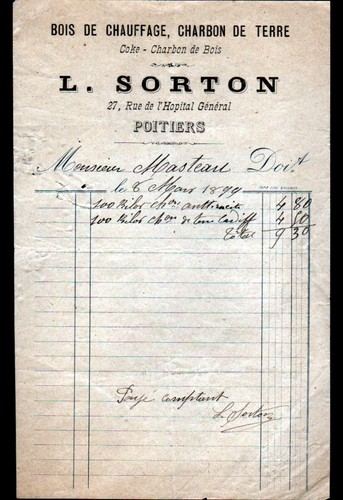 BOIS DE CHAUFFAGE, CHARBON DE TERRE
Coke - Charbon de Bois
L. SORTON
27, Rue de l'Hopital Général
POITIERS
Monsieur Masteau Doit
le 8 Mars 1899
100 Kilos chon anthracite 4 80
100 Kilos chon de terre Cardiff 4 50
Total 9 30
Payé comptant
L. Sorton